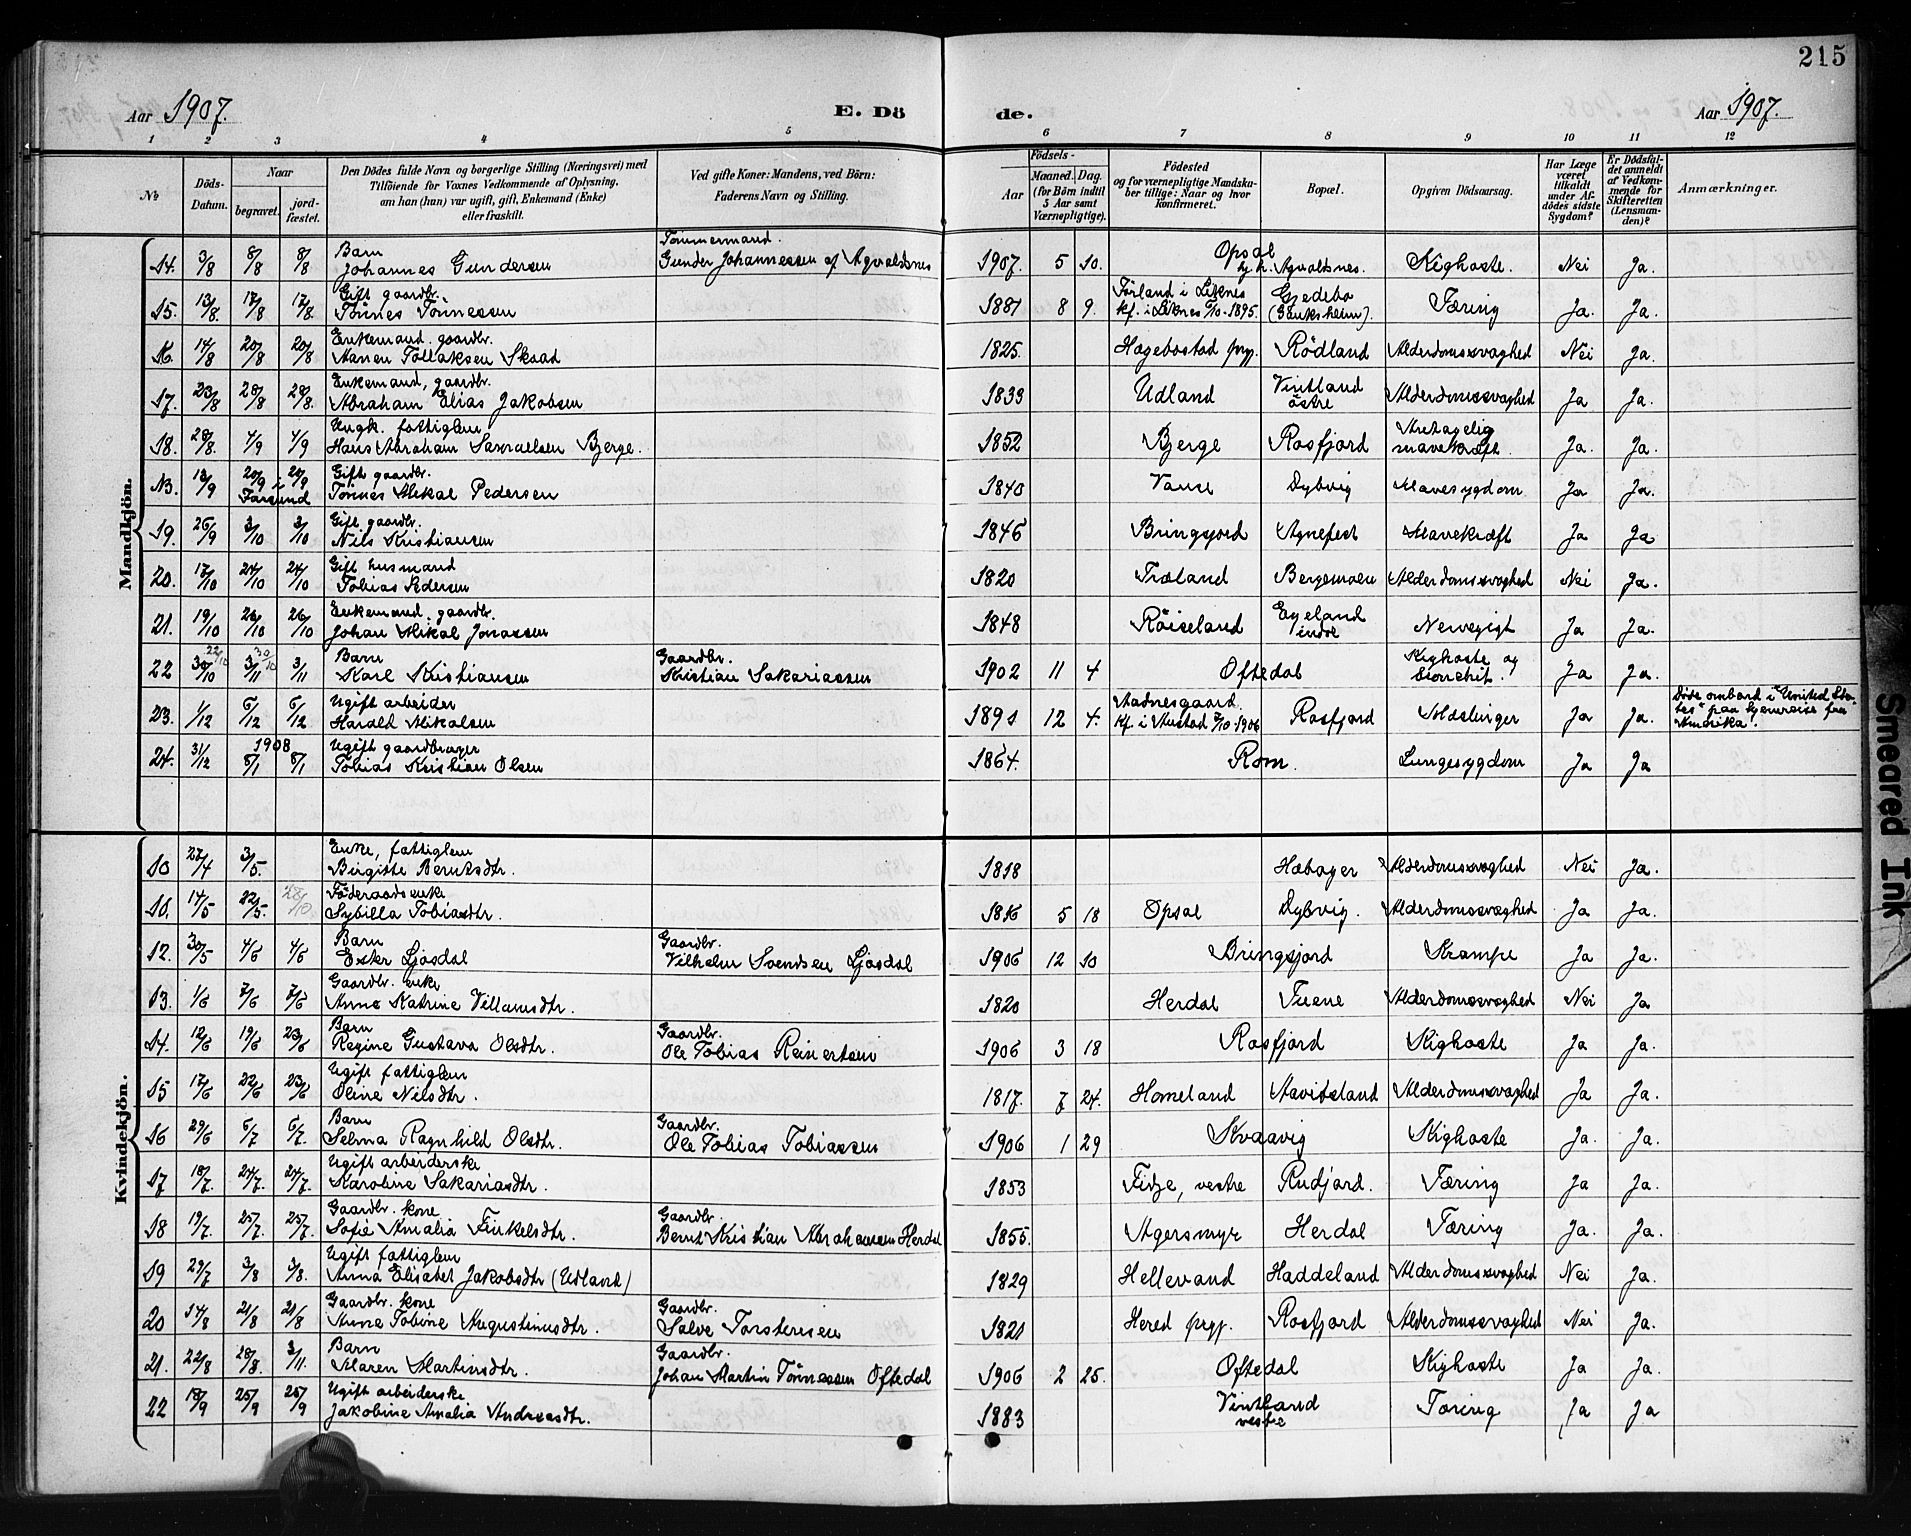 215
Aar 1907. E. Dö de. Aar 1907.
1 2 3 4 5 6 7 8 9 10 11 12
No
Döds-Datum.
Naar
begravet.
jord-fæstet.
Den Dödes fulde Navn og borgerlige Stilling (Næringsvei) med
Tilföiende for Voxnes Vedkommende af Oplysning,
om han (hun) var ugift, gift, Enkemand (Enke)
eller fraskilt.
Ved gifte Koner: Mandens, ved Börn:
Faderens Navn og Stilling.
Födsels-
Aar
Maaned. Dag.
(for Börn indtil
5 Aar samt
Værnepligtige).
Födested
og for værnepligtige Mandska-
ber tillige: Naar og hvor
konfirmeret.
Bopæl.
Opgiven Dödsaarsag.
Har Læge
været
tilkaldt
under Af-
dödes sidste
Sygdom?
Er Dödsfal-
det anmeldt
af Vedkom-
mende for
Skifteretten
(Lensman-
den)?
Anmærkninger.
Mandkjön.
Barn Tömmermand.
14. 3/8 8/8 8/8 Johannes Gundersen Gunder Johannessen af Agvaldsnes 1907. 5 10. Opsal Agvaldsnes. Kighoste. Nei Ja.
Gift gaardbr.
15. 13/8. 17/8 17/8. Tönnes Tönnessen 1881 8 9. Förland i Liknes kf. i Liknes 6/10-1895. Gjedebo Tæring Ja Ja.
Enkemand. gaardbr.
16. 14/8 20/8 20/8 Aanen Tollaksen Skaad 1825. Hægebostad prgj. Rödland Alderdomssvaghed Nei Ja.
Enkemand, gaardbr.
17. 23/8 28/8 28/8. Abraham Elias Jakobsen 1833 Udland Vintland östre Alderdomssvaghed Ja Ja.
Ungk. fattiglem
18. 28/8. 4/9 4/9 Hans Abraham Samuelsen Bjerge. 1852 Bjerge Rosfjord Antagelig mavekræft. Ja. Ja.
Gift gaardbr.
N3. 13/9 20/9 i Farsund 20/9 Tönnes Mikal Pedersen 1840 Vanse Dybvig Mavesygdom Ja Ja.
Gift gaardbr.
19. 26/9 3/10 3/10 Nils Kristiansen 1846 Bringsjord Agnefest Mavekræft Ja Ja
Gift husmand
20. 17/10 24/10 24/10 Tobias Pedersen 1820 Træland Bergemoen Alderdomssvaghed Nei Ja.
Enkemand, gaardbr.
21. 19/10 26/10 26/10 Johan Mikal Jonassen 1848 Röiseland Egeland indre Nervegigt Ja Ja.
Barn Gaardbr.
22 30/10 22/10 3/11 30/10 3/11 Karl Kristiansen Kristian Sakariassen 1902 11 4 Oftedal Kighoste og Ja Ja.
Ugift arbeider
23. 1/12 6/12 6/12 Harald Mikalsen 1891 12 4. Aadnesgaard. kf. i Austad 7/10-1906 Rosfjord Mæslinger Ja Ja. Döde ombord i "United Sta-
tes" paa hjemreise fra
Amerika.
Ugift gaardbruger
24. 31/12 1908 5/1 5/1 Tobias Kristian Olsen 1864. Rom. Lungesygdom Ja Ja
Kvindekjön.
Enke, fattiglem
10 27/4 3/5. Birgitte Berntsdtr. 1818 Hæbager Alderdomssvaghed Nei Ja.
Föderaadsenke
14/5 22/5. 28/10 Sybilla Tobiasdtr. 1816 5 18 Opsal Dybvig. Alderdomssvaghed Ja Ja.
Barn Gaardbr.
12. 30/5 4/6 4/6 Ester Ljosdal Vilhelm Svendsen Ljosdal 1906 12 10 Bringsjord Krampe Ja Ja.
Gaardbr. enke
13. 1/6 7/6 7/6 Anne Katrine Villumsdtr. 1820 Herdal Tuene Alderdomssvaghed Nei Ja
Barn Gaardbr.
14. 12/6 19/6 23/6 Regine Gustava Olsdtr. Ole Tobias Reinertsen 1906 3 18 Rosfjord Kighoste Ja Ja.
Ugift fattiglem
15 17/6 22/6 23/6 Oline Nilsdtr. 1817. 7 24. Homeland Aavitsland Alderdomssvaghed Ja Ja.
Barn Gaardbr.
16 29/6 6/7 6/7. Selma Ragnhild Olsdtr. Ole Tobias Tobiassen 1906 1 29 Kvaavig Kighoste Ja. Ja.
Ugift arbeiderske
17 18/7. 24/7. 24/7. Karoline Sakariasdtr. 1853 Fidje, vestre Rudjord. Tæring Ja Ja.
Gaardbr. kone Gaardbr.
18 19/7. 25/7. 25/7. Sofie Amalia Tinkelsdtr. Bernt Kristian Abrahamsen Herdal 1855. Agersmyr Herdal Tæring Ja. Ja.
Ugift fattiglem
19 29/7 3/8 3/8. Anna Elisabet Jakobsdtr (Udland) 1829 Hellevand Haddeland Alderdomssvaghed Nei Ja.
Gaardbr. kone Gaardbr.
20 14/8 21/8 21/8 Anne Tobine Augustinusdtr. Salve Torstensen 1821 Hered prgj. Rosfjord Alderdomssvaghed Nei Ja.
Barn Gaardbr.
21. 22/8 28/8. 3/11. Maren Martinsdtr. Johan Martin Tönnessen Oftedal 1906 2 25. Oftedal Kighoste Ja Ja.
Ugift arbeiderske
22 18/9 25/9 25/9 Jakobine Amalia Andreasdtr. 1883 Vintland vestre Tæring Ja Ja
Smeared Ink